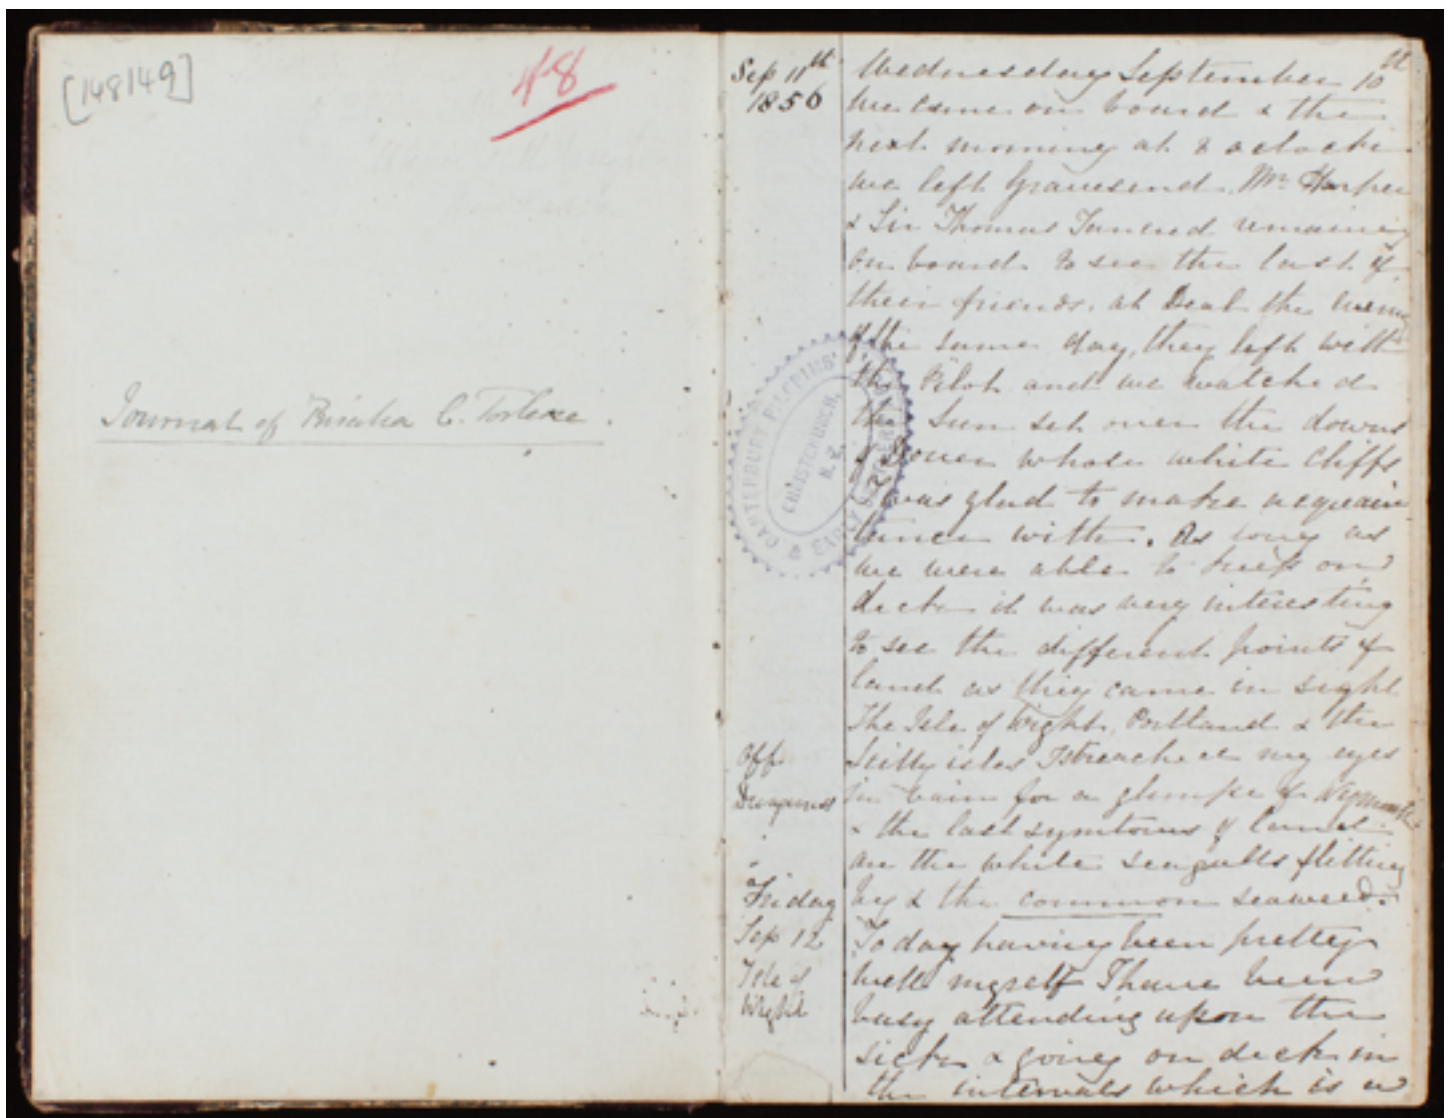 [148149]
48
Journal of C. Torlesse.
CANTERBURY PILGRIMS' & EARLY SETTLERS
CHRISTCHURCH, N.Z.
Sep 11th
1856
Off
Dungeness
Friday
Sep 12
Isle of
Wight
Wednesday September 10th
We came on board & the
next morning at 8 oclock
we left Gravesend. Mr Harper
& Sir Thomas Tancred remaining
on board to see the last of
their friends. at Deal the evening
of the same day, they left with
the Pilot and we watched
the Sun set over the downs
of Dover whose white cliffs
I was glad to make acquain
tance with. As long as
we were able to keep on
deck it was very interesting
to see the different points of
land as they came in sight
The Isle of Wight, Portland & the
Scilly isles I streached my eyes
in vain for a glimpse of
& the last symtoms of land
are the white seagulls flitting
by & the common seaweed.
To day having been pretty
well myself I have been
busy attending upon the
sick & going on deck in
the intervals which is a